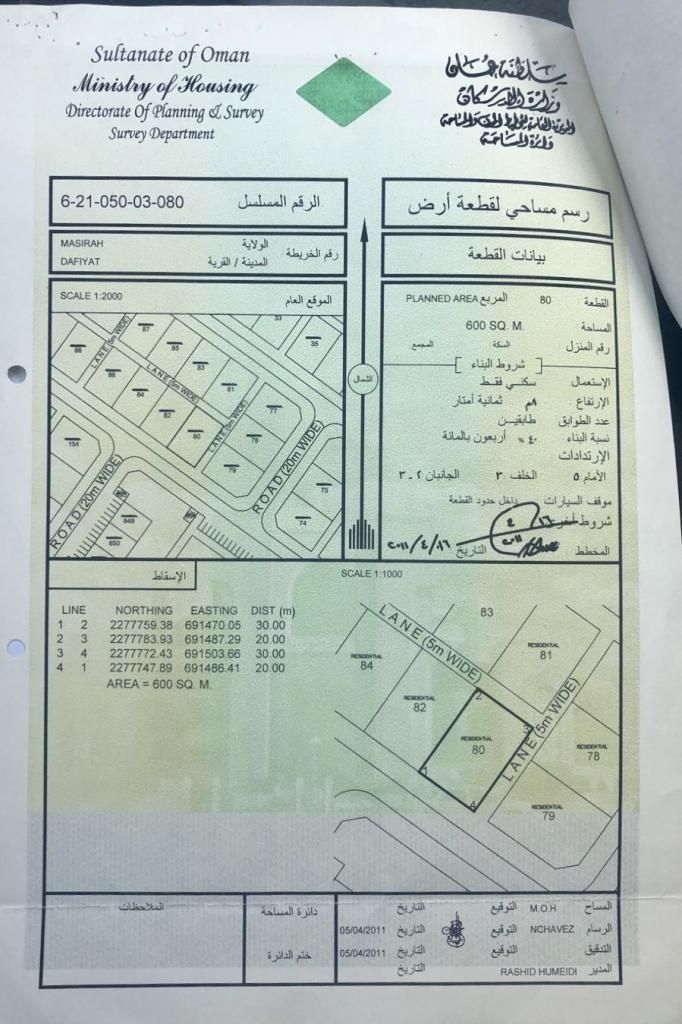 Sultanate of Oman
Ministry of Housing
Directorate Of Planning & Survey
Survey Department
سلطنة عمان
وزارة الإسكان
المديرية العامة للتخطيط والمساحة
دائرة المساحة
رسم مساحي لقطعة أرض
الرقم المسلسل 6-21-050-03-080
بيانات القطعة
رقم الخريطة
الولاية MASIRAH
المدينة / القرية DAFIYAT
الموقع العام SCALE 1:2000
القطعة 80 المربع PLANNED AREA
المساحة 600 SQ. M.
رقم المنزل السكة المجمع
شروط البناء
الإستعمال سكني فقط
الإرتفاع ٨م ثمانية أمتار
عدد الطوابق طابقين
نسبة البناء ٤٠% أربعون بالمائة
الإرتدادات
الأمام ٥ الخلف ٣ الجانبان ٢ - ٣
موقف السيارات داخل حدود القطعة
شروط أخرى
المخطط التاريخ ٢٠١١/٤/١٦
١٦
٤
٢٠١١
الشمال
33
35
87
88
85
83
86
84
81
82
80
77
78
79
75
74
154
849
850
LANE (5m WIDE)
LANE (5m WIDE)
LANE (5m WIDE)
ROAD (20m WIDE)
ROAD (20m WIDE)
الإسقاط
SCALE 1:1000
LINE NORTHING EASTING DIST (m)
1 2 2277759.38 691470.05 30.00
2 3 2277783.93 691487.29 20.00
3 4 2277772.43 691503.66 30.00
4 1 2277747.89 691486.41 20.00
AREA = 600 SQ. M.
LANE (5m WIDE)
83
RESIDENTIAL
81
RESIDENTIAL
84
RESIDENTIAL
82
RESIDENTIAL
80
1
2
3
4
LANE (5m WIDE)
RESIDENTIAL
78
RESIDENTIAL
79
الملاحظات
دائرة المساحة
ختم الدائرة
المساح M.O.H التوقيع التاريخ
الرسام NCHAVEZ التوقيع التاريخ 05/04/2011
التدقيق التوقيع التاريخ 05/04/2011
المدير RASHID HUMEIDI التاريخ